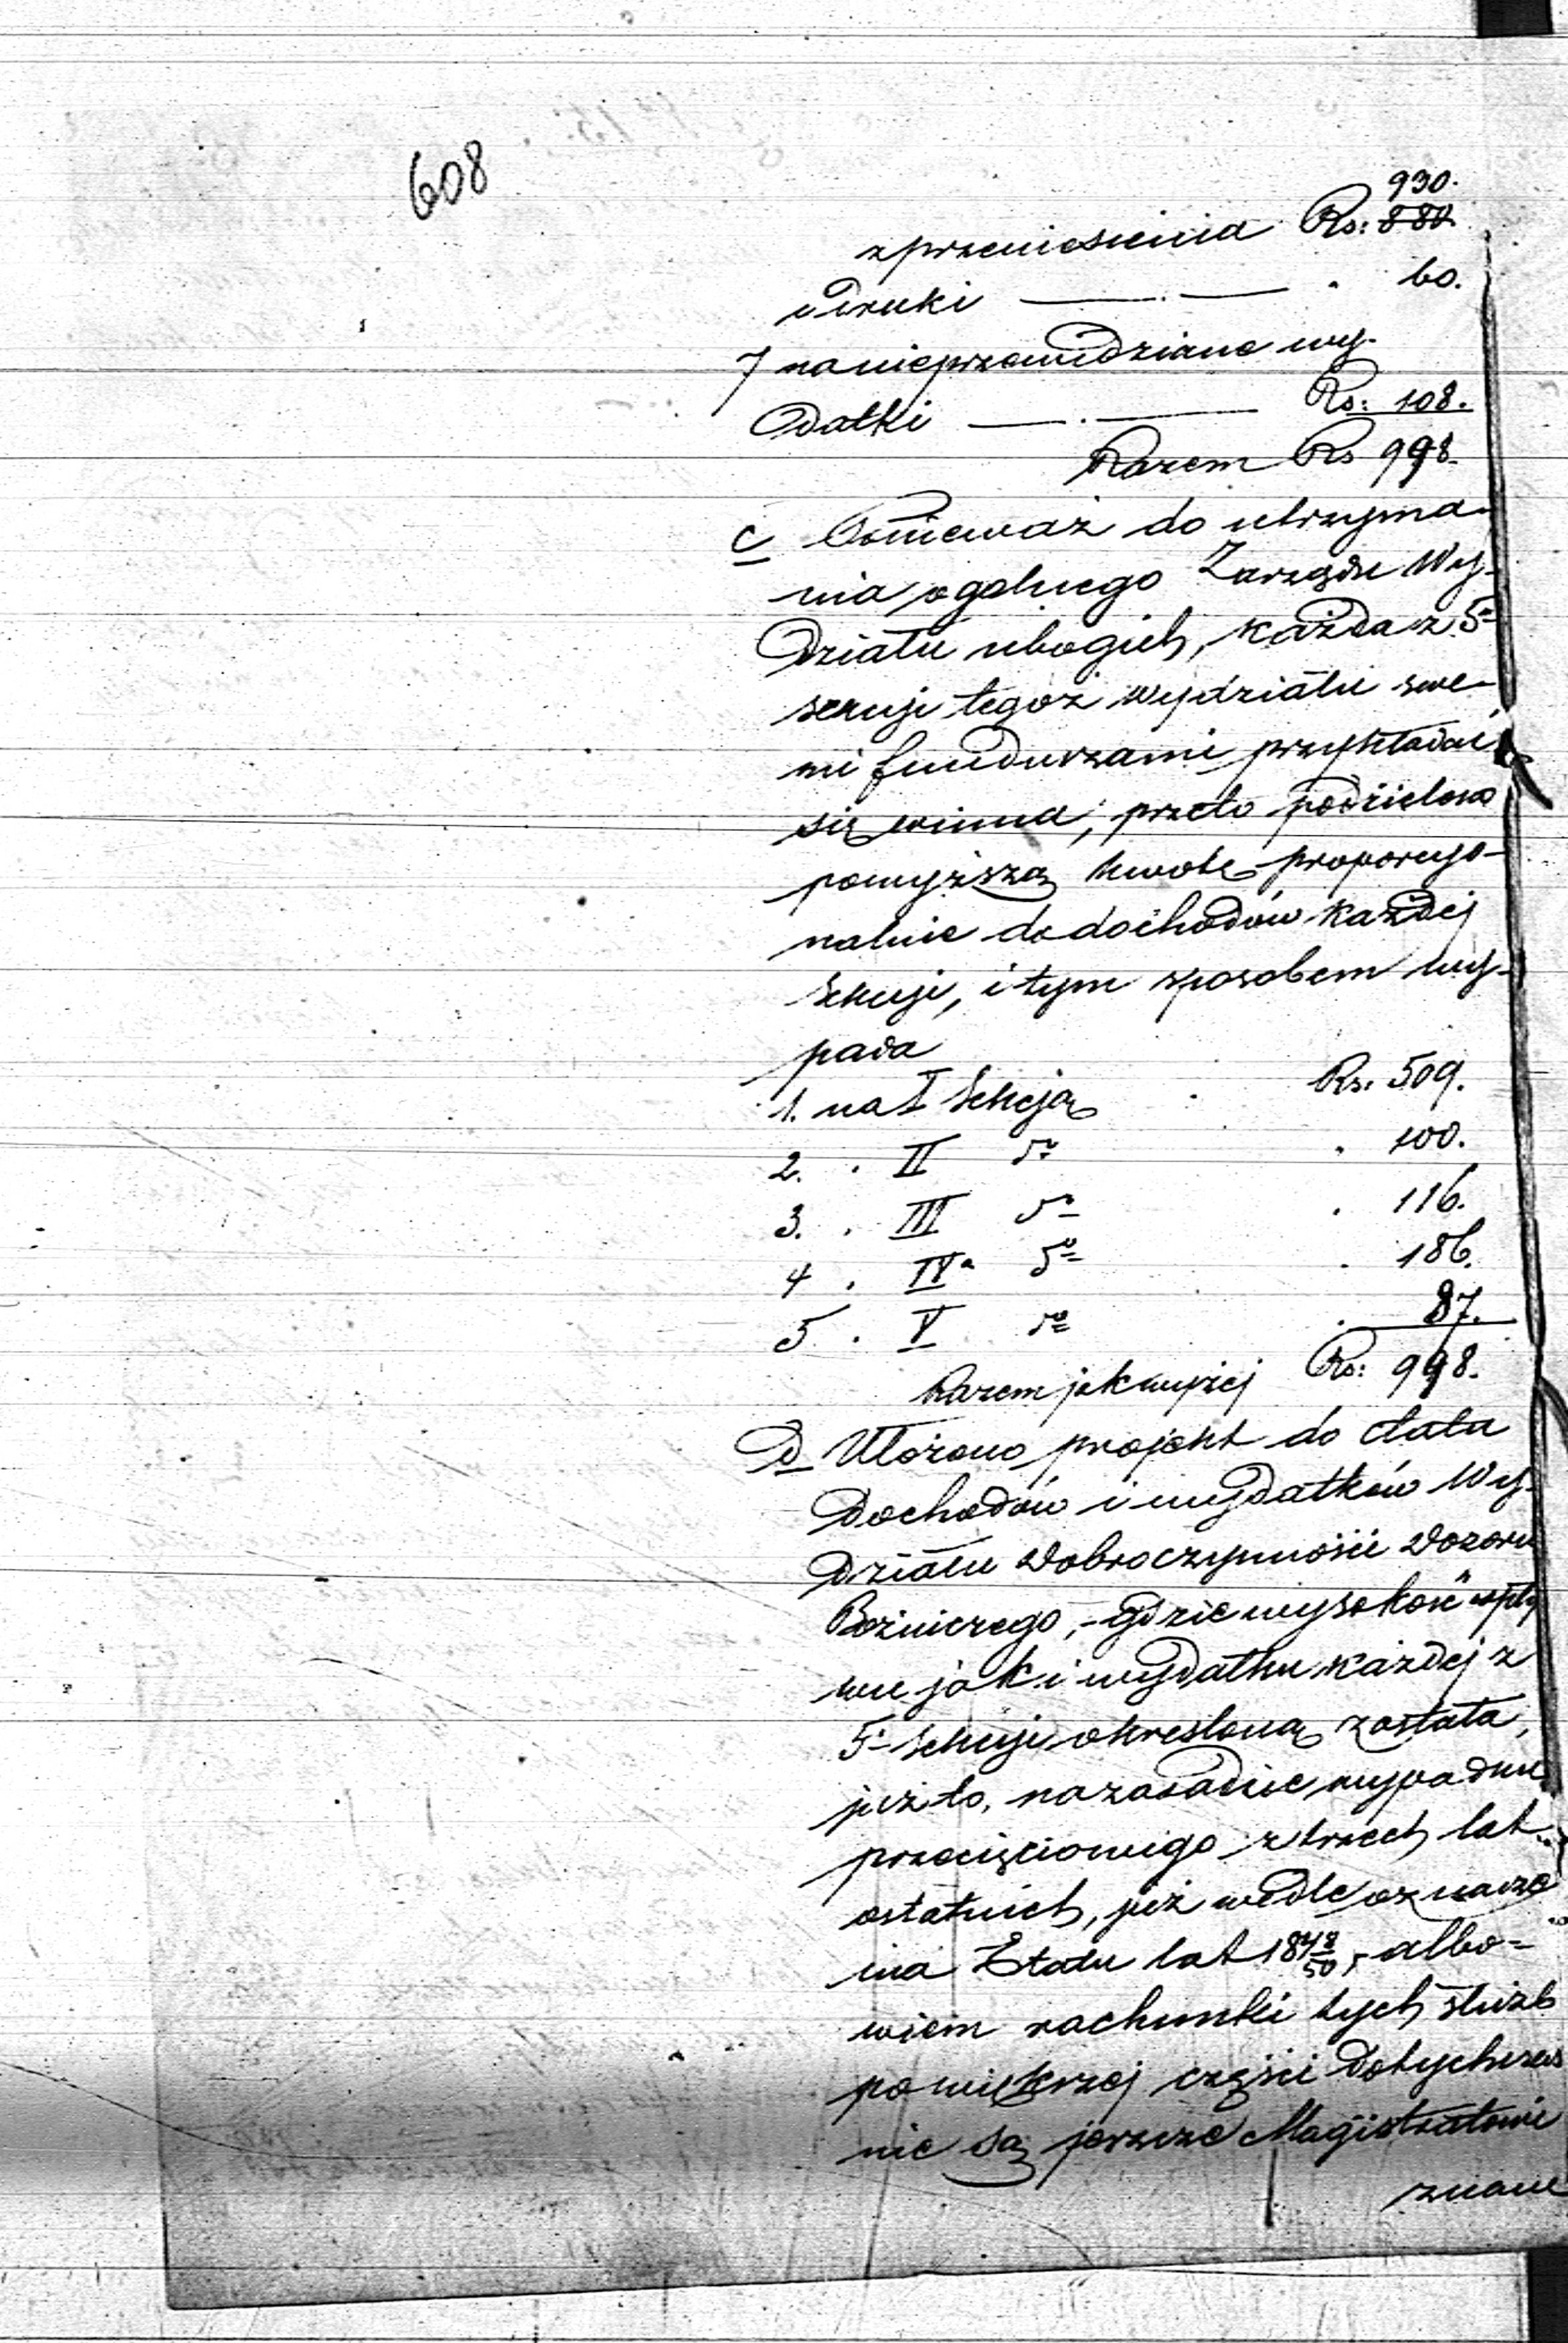 608
930.
z przeniesienia Rs: 880
i druki — . — . 60.
7 na nieprzewidziane wy-
datki — . — Rs: 108.
Razem Rs 998.
C Ponieważ do utrzyma-
nia ogolnego Zarządu Wy-
działu ubogich, każda z 5
sekcji tegoż wydziału swe-
mi funduszami przykładać
się winna, przeto podzielono
powyższą kwotę proporcyo-
nalnie do dochodów każdej
Sekcji, i tym sposobem wy-
pada
1. na I Sekcją . Rs: 509.
2. . II do . 100.
3. . III do . 116.
4 . IVa do . 186.
5 . V do . 87.
Razem jak wyżej Rs: 998.
D Ułożono projekt do etatu
Dochodów i wydatków Wy-
działu Dobroczynności Dozoru
Bożniczego, - gdzie wysokość wpły
wu jak i wydatku każdej z
5 Sekcji określoną została,
już to, na zasadzie wypadku
przecięciowego z trzech lat
ostatnich, już wedle oznacze
nia Etatu lat 1848/50, albo=
wiem rachunki tych służb
po większej części dotychczas
nie są jeszcze Magistratowi
znane